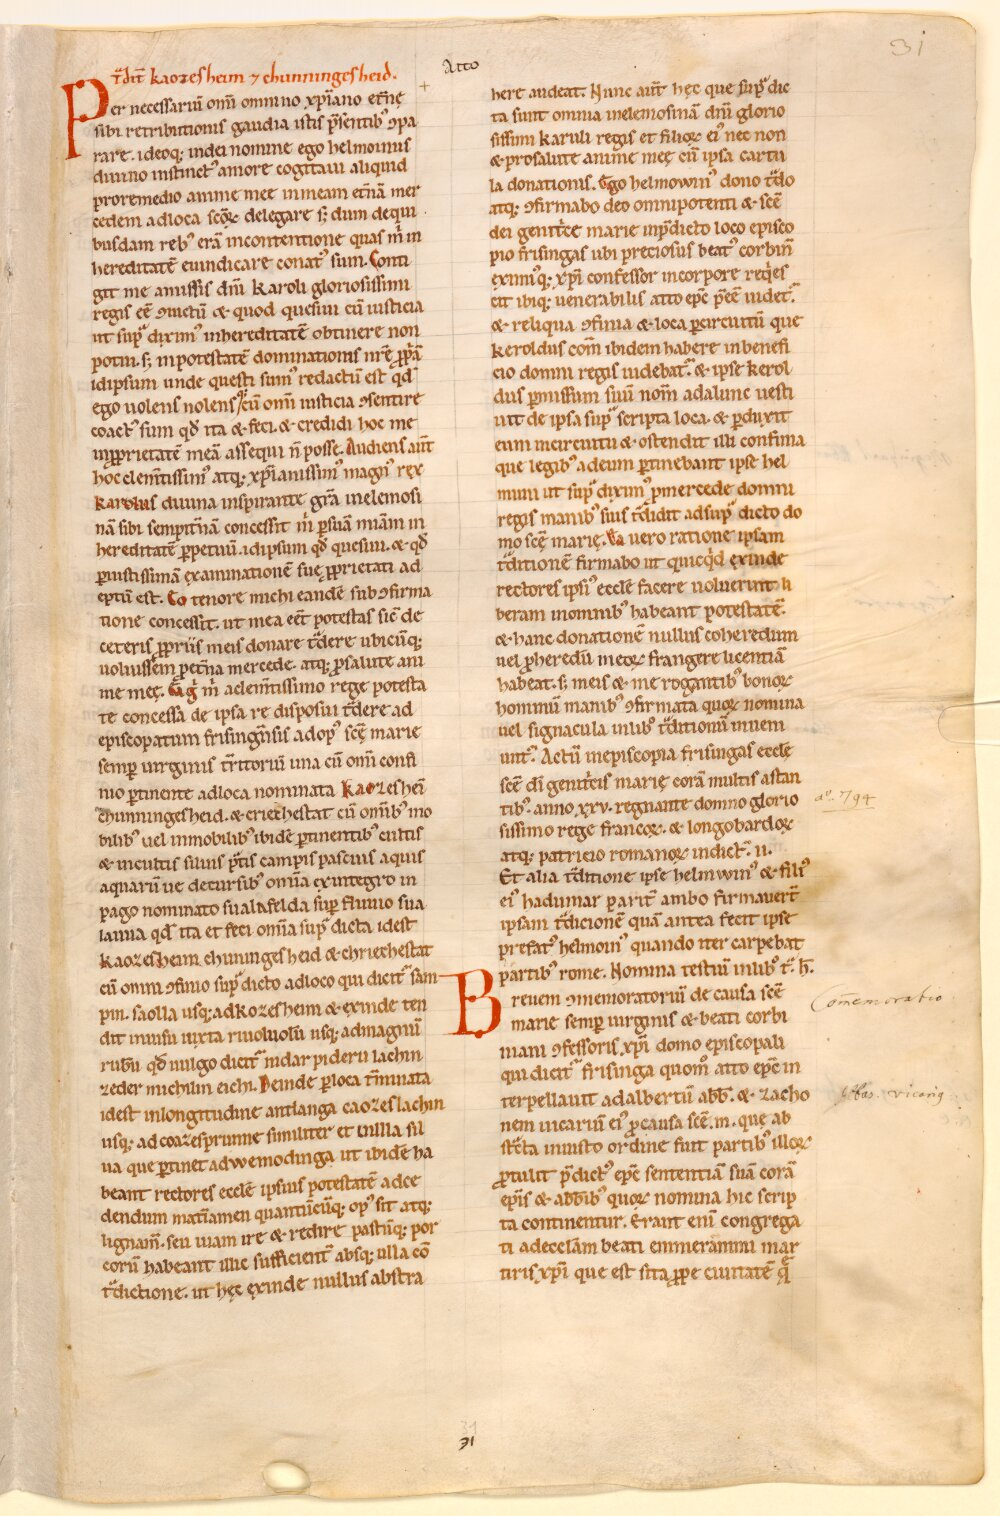 31
Atto
t̄dit̄ kaozesheim ⁊ chunningesheid.
Per necessariū om̄i omnino xp̄iano et̄nę
sibi retributionis gaudia istis p̄sentibꝰ ꝯpa
rare. ideoq; indei nomine ego helmoinus
diuino instinctꝰ amore cogitaui aliquid
proremedio anime mee inmeam et̄nā mer
cedem adloca sc̄oꝝ delegare s; dum dequi
busdam rebꝰ erā incontentione quas m̄ in
hereditatē euindicare conatꝰ sum. Conti
git me amissis dn̄i karoli gloriosissimi
regis eē ꝯuictū & quod quesiui cū iusticia
ut sup̄ diximꝰ inhereditatē obtinere non
potui. s; inpotestatē dominationis nr̄ę ꝓp̄ā
idipsum unde questi sumꝰ redactū est qd̄
ego uolens nolensq; cū om̄i iusticia ꝯsentire
coactꝰ sum qd̄ ita & feci. & credidi hoc me
inꝓprietatē meā assequi n̄ posse. Audiens aūt
hoc clem̄tissimꝰ atq; xp̄ianissimꝰ magnꝰ rex
karolus diuina inspirante gr̄a inelemosi
nā sibi sempit̄nā concessit m̄ ꝑsuā miām in
hereditatē ꝑpetuū. idipsum qd̄ quesiui. & qd̄
ꝑiustissimā examinationē suę ꝓprietati ad
eptū est. Eo tenore michi eandē sub ꝯfirma
tione concessit. ut mea eēt potestas sic̄ de
ceteris ꝓpriis meis donare t̄dere ubicūq;
uoluissem ꝓet̄na mercede. atq; ꝓsalute ani
me meę. Ergo m̄ aclem̄tissimo rege potesta
te concessa de ipsa re disposui t̄dere ad
episcopatum frisingn̄sis adopꝰ scē marie
semꝑ uirginis t̄rritoriū una cū om̄i confi
nio ꝑtinente adloca nominata kaozeshei
chunningesheid. & eriechestat cū om̄ibꝰ mo
bilibꝰ uel inmobilibꝰ ibidē ꝑtinentibꝰ cultis
& incultis siluis p̄tis campis pascuis aquis
aquarū ue decursibꝰ omīa exintegro in
pago nominato sualafelda suꝑ fluuio sua
laua qd̄ ita et feci omīa sup̄ dicta idest
kaozesheim chuningesheid & chriechestat
cū omni ꝯfinio sup̄ dicto adloco qui dicit̄ sam
pin. saolla usq; adkozesheim & exinde ten
dit insusu iuxta riuoluolū usq; admagnū
rubū qd̄ uulgo dicit̄ indar pideru lachin
zeder michilun eichi. Deinde ꝑloca t̄minata
idest inlongitudine antlanga caozeslachin
usq; adcoazesprunne similiter et inilla sil
ua que ꝑtinet adwemodinga ut ibidē ha
beant rectores ecclē ipsius potestatē adce
dendum mat̄iamen quantūcūq; opꝰ sit atq;
lignam̄. seu uiam ire & redire pastūq; por
corū habeant illic sufficient̄ absq; ulla cō
t̄dictione. ut hęc exinde nullus abstra
here audeat. Nunc aūt hęc que sup̄ dic
ta sunt omnia inelemosinā dn̄i glorio
sissimi karuli regis et filioꝝ eiꝰ nec non
& prosalute anime meę cū ipsa cartu
la donationis. Ego helmowinꝰ dono t̄do
atq; ꝯfirmabo deo omnipotenti & scē
dei genit̄ce marie inp̄dicto loco episco
pio frisingas ubi preciosus beatꝰ corbin̄
eximiꝰq; xp̄i confessor incorpore reqes
cit ibiq; uenerabilis atto epc̄ p̄eē uidet̄.
& reliqua ꝯfinia & loca ꝑcircuitū que
keroldus com̄ ibidem habere inbenefi
cio domni regis uidebat̄. & ipse kerol
dus ꝑmissum suū nom̄ adalunc uesti
uit de ipsa sup̄ scripta loca. & ꝑduxit
eum incircuitu & ostendit illi confinia
que legibꝰ adeum ꝑtinebant ipse hel
muni ut sup̄ diximꝰ ꝓmercede domni
regis manibꝰ suis t̄didit adsup̄ dicto do
mo scē marię. Ea uero ratione ipsam
t̄ditionē firmabo ut quicqd exinde
rectores ipsiꝰ ecclē facere uoluerint li
beram inomnibꝰ habeant potestatē.
& hanc donationē nullus coheredum
uel ꝓheredū meoꝝ frangere licentiā
habeat. s; meis & me rogantibꝰ bonoꝝ
hominū manibꝰ ꝯfirmata quoꝝ nomina
uel signacula inlibꝰ t̄ditionū inueni
unt̄. Actū inepiscopia frisingas ecclē
scē di genitcis marię corā multis astan
tibꝰ. anno. xxv. regnante domno glorio
sissimo rege francoꝝ. & longobardoꝝ
atq; patricio romanoꝝ indict̄. ii.
ao. 794
Et alia t̄ditione ipse helmwinꝰ & filiꝰ
eiꝰ hadumar parit̄ ambo firmauert̄
ipsam t̄dicionē quā antea fecit ipse
prefatꝰ helmoinꝰ quando iter carpebat
partibꝰ rome. Nomina testiū inlibꝰ t̄. h̄.
Breuem ꝯmemoratoriū de causa scē
Com̄emoratio
marie semꝑ uirginis & beati corbi
niani ꝯfessoris xp̄i domo episcopali
qui dicit̄ frisinga quom̄ atto epc̄ in
terpellauit adalbertū abb̄. & zacho
nem uicariū eiꝰ ꝓcausa scē. m. que ab
st̄cta iniusto ordine fuit partibꝰ illoꝝ
ꝓtulit p̄dictꝰ epc̄ sententiā suā corā
ep̄is & abb̄ibꝰ quoꝝ nomina hic scrip
ta continentur. Erant enī congrega
ti adecclam beati emmerammi mar
tiris xp̄i que est sita ꝓpe ciuitatē q̄
31